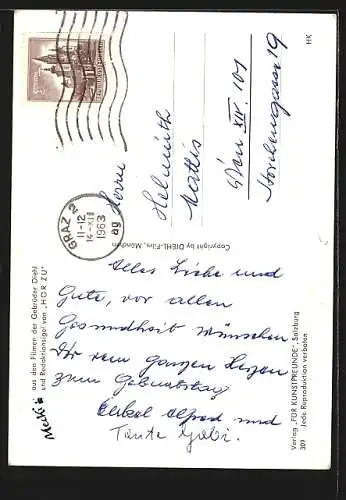 GRAZ 2
11-12
14-XII
1963
ag
Herrn
Helmuth
Mattis
Wien XIV. 101
Storchengasse 19
HK
Copyright by DIEHL-Film, München
Alles Liebe und
Gute, vor allen
Gesundheit wünschen
Dir vom ganzen Herzen
zum Geburtstag
Onkel Alfred und
Tante Gabi.
Mecki
aus den Filmen der Gebrüder Diehl
und Redaktionsigel von „HÖR ZU"
Verlag „FÜR KUNSTFREUNDE", Salzburg
309 Jede Reproduktion verboten